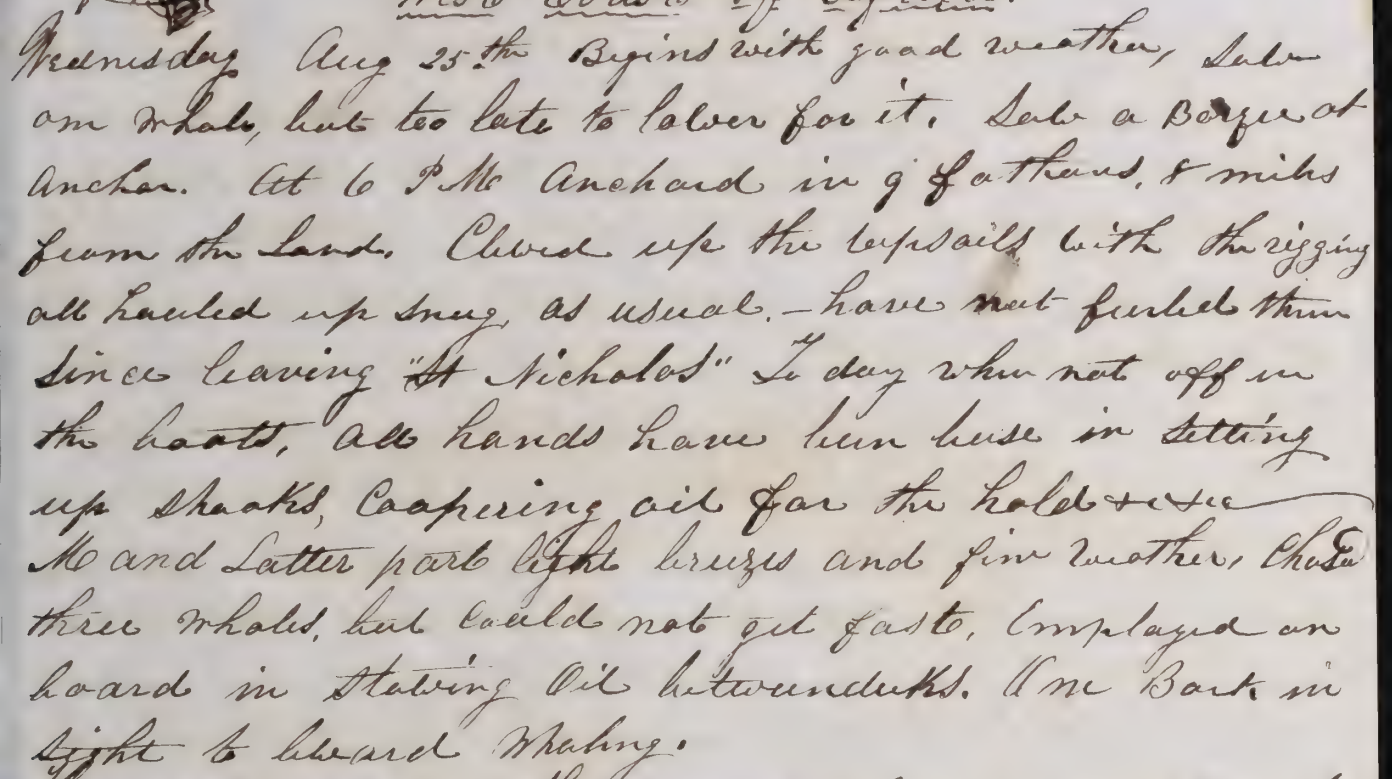 West Coast of
Wednesday Aug 25th Begins with good weather, Saw
one whale, but too late to lower for it. Saw a Barque at
Anchor. At 6 P M Anchord in 9 fathoms, 8 miles
from the Land. Clewed up the topsails with the rigging
all hauled up snug, as usual. - have not furled them
since leaving "St Nicholas" To day when not off in
the boats, all hands have been buse in setting
up shooks, Coopering oil for the hold &c &c
M and Latter part light breezes and fine weather, Chased
three whales, but could not get fast, Employed on
board in stowing Oil betweendecks. One Bark in
sight to leward Whaling.